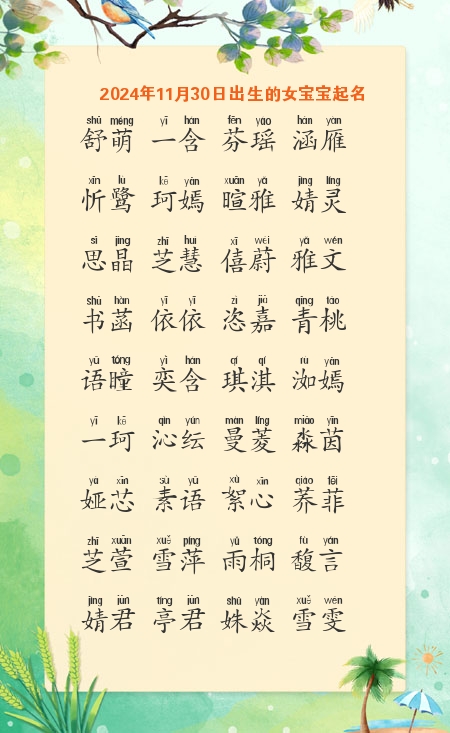 2024年11月30日出生的女宝宝起名
shū méng yī hán fēn yáo hán yàn
舒萌 一含 芬瑶 涵雁
xīn lù kē yān xuān yǎ jìng líng
忻鹭 珂嫣 暄雅 婧灵
sī jīng zhī huì xī wèi yǎ wén
思晶 芝慧 僖蔚 雅文
shū hàn yī yī zì jiā qīng táo
书菡 依依 恣嘉 青桃
yǔ tóng yì hán qí qí rù yān
语瞳 奕含 琪淇 洳嫣
yī kē qìn yún màn líng miǎo yīn
一珂 沁纭 曼菱 淼茵
yà xīn sù yǔ xù xīn qiáo fēi
娅芯 素语 絮心 荞菲
zhī xuān xuě píng yǔ tóng fù yán
芝萱 雪萍 雨桐 馥言
jìng jūn tíng jūn shū yàn xuě wén
婧君 亭君 姝焱 雪雯